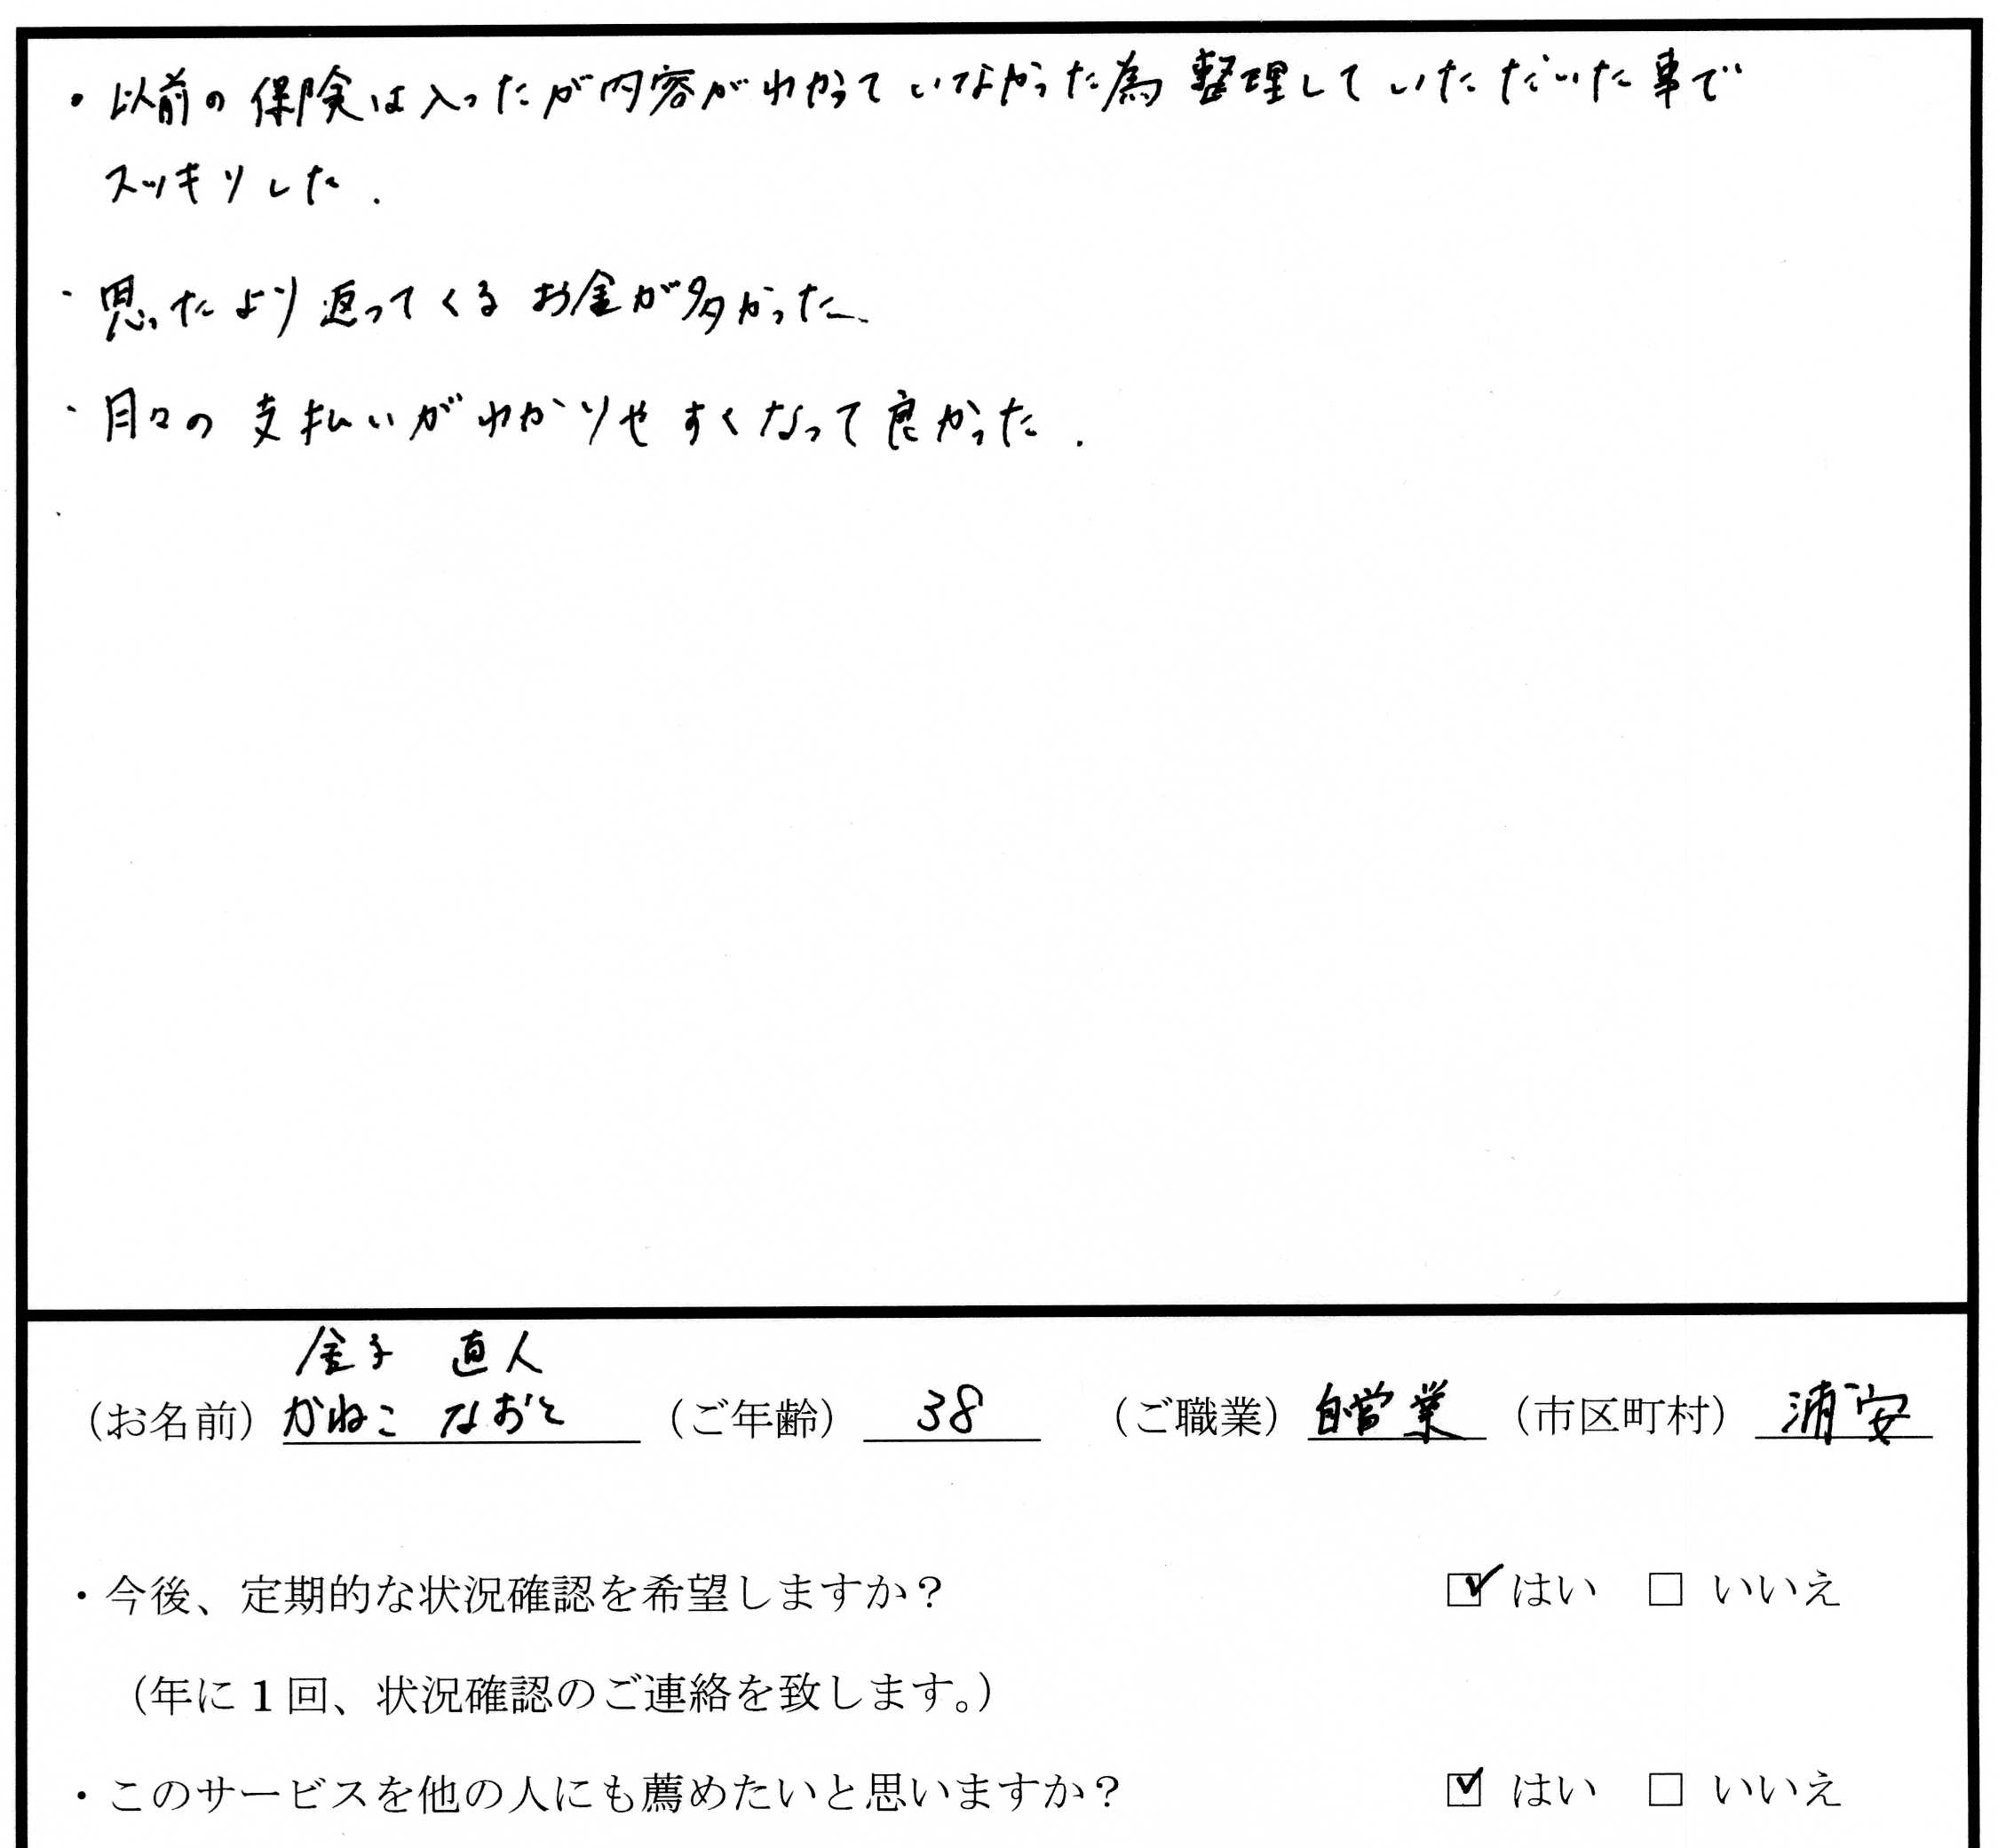 ・以前の保険は入ったが内容がわかっていなかった為 整理していただいた事で
スッキリした.
・思ったより返ってくるお金が多かった.
・月々の支払いがわかりやすくなって良かった.
金子 直人
（お名前）かねこ なおと （ご年齢） 38 （ご職業）自営業 （市区町村） 浦安
・今後、定期的な状況確認を希望しますか？ ☑ はい □ いいえ
（年に１回、状況確認のご連絡を致します。）
・このサービスを他の人にも薦めたいと思いますか？ ☑ はい □ いいえ